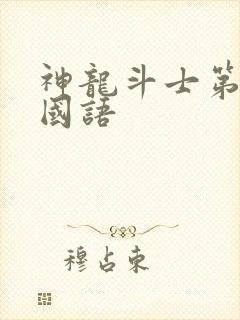 神龍斗士第
國語
穆占東